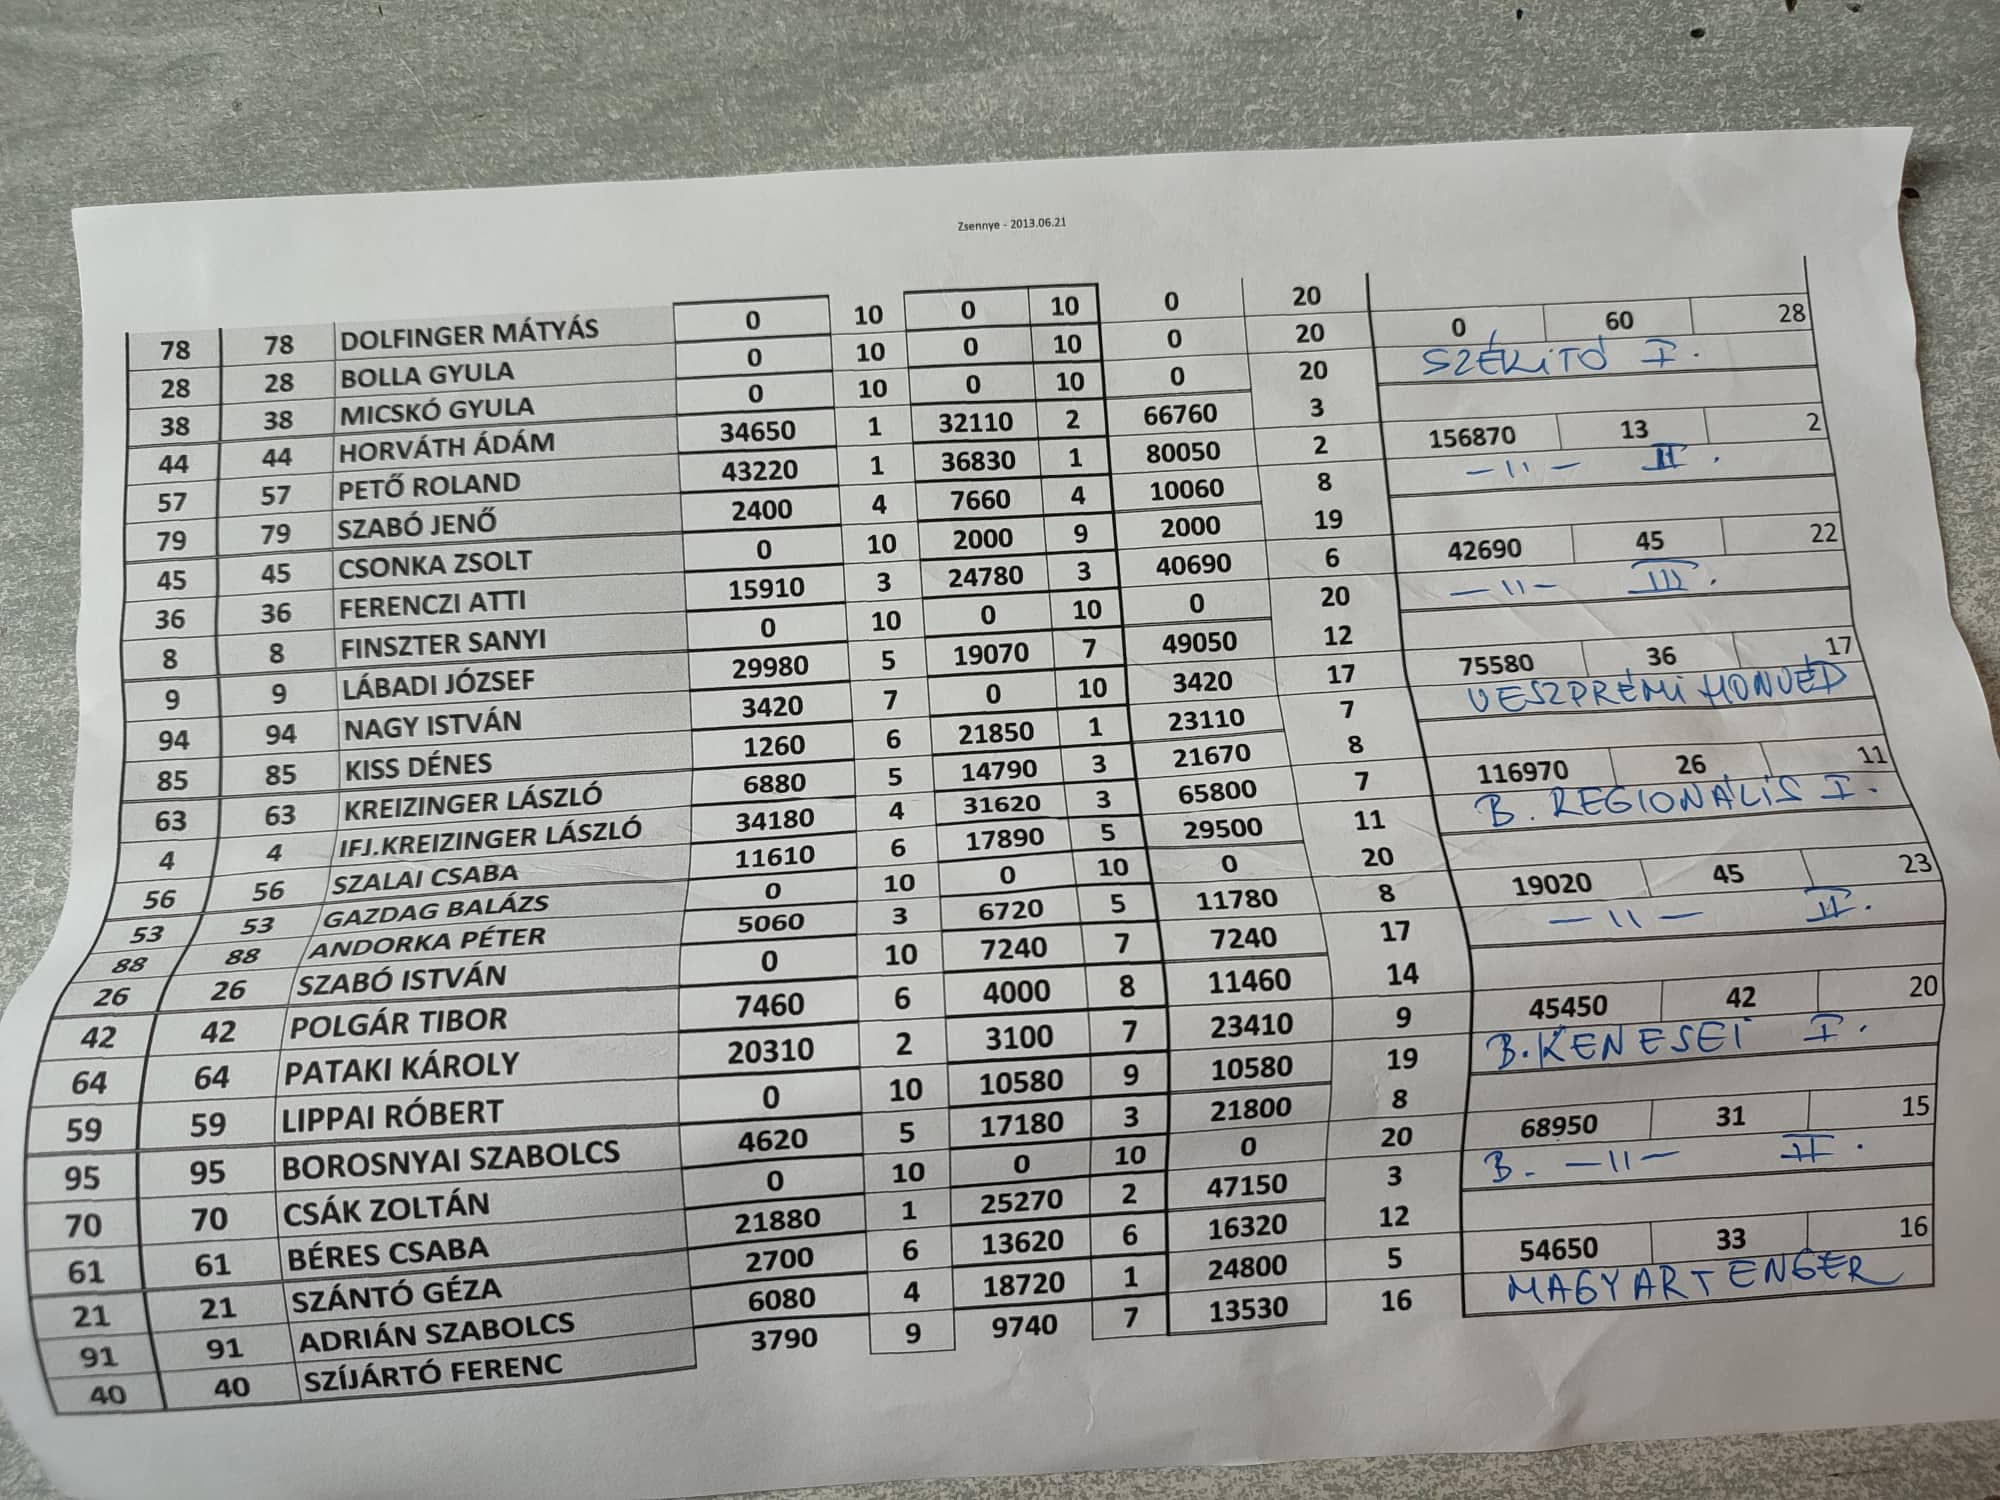 Zsennye - 2013.06.21
78 78 DOLFINGER MÁTYÁS 0 10 0 10 0 20
28 28 BOLLA GYULA 0 10 0 10 0 20 0 60 28
38 38 MICSKÓ GYULA 0 10 0 10 0 20 SZÉKITÓ I.
44 44 HORVÁTH ÁDÁM 34650 1 32110 2 66760 3
57 57 PETŐ ROLAND 43220 1 36830 1 80050 2 156870 13 2
79 79 SZABÓ JENŐ 2400 4 7660 4 10060 8 —11— II.
45 45 CSONKA ZSOLT 0 10 2000 9 2000 19
36 36 FERENCZI ATTI 15910 3 24780 3 40690 6 42690 45 22
8 8 FINSZTER SANYI 0 10 0 10 0 20 —11— III.
9 9 LÁBADI JÓZSEF 29980 5 19070 7 49050 12
94 94 NAGY ISTVÁN 3420 7 0 10 3420 17 75580 36 17
85 85 KISS DÉNES 1260 6 21850 1 23110 7 VESZPRÉMI HONVÉD
63 63 KREIZINGER LÁSZLÓ 6880 5 14790 3 21670 8
4 4 IFJ.KREIZINGER LÁSZLÓ 34180 4 31620 3 65800 7 116970 26 11
56 56 SZALAI CSABA 11610 6 17890 5 29500 11 B. REGIONÁLIS I.
53 53 GAZDAG BALÁZS 0 10 0 10 0 20
88 88 ANDORKA PÉTER 5060 3 6720 5 11780 8 19020 45 23
26 26 SZABÓ ISTVÁN 0 10 7240 7 7240 17 —11— II.
42 42 POLGÁR TIBOR 7460 6 4000 8 11460 14
64 64 PATAKI KÁROLY 20310 2 3100 7 23410 9 45450 42 20
59 59 LIPPAI RÓBERT 0 10 10580 9 10580 19 B.KENESEI I.
95 95 BOROSNYAI SZABOLCS 4620 5 17180 3 21800 8
70 70 CSÁK ZOLTÁN 0 10 0 10 0 20 68950 31 15
61 61 BÉRES CSABA 21880 1 25270 2 47150 3 B. —11— II.
21 21 SZÁNTÓ GÉZA 2700 6 13620 6 16320 12
91 91 ADRIÁN SZABOLCS 6080 4 18720 1 24800 5 54650 33 16
40 40 SZÍJÁRTÓ FERENC 3790 9 9740 7 13530 16 MAGYARTENGER